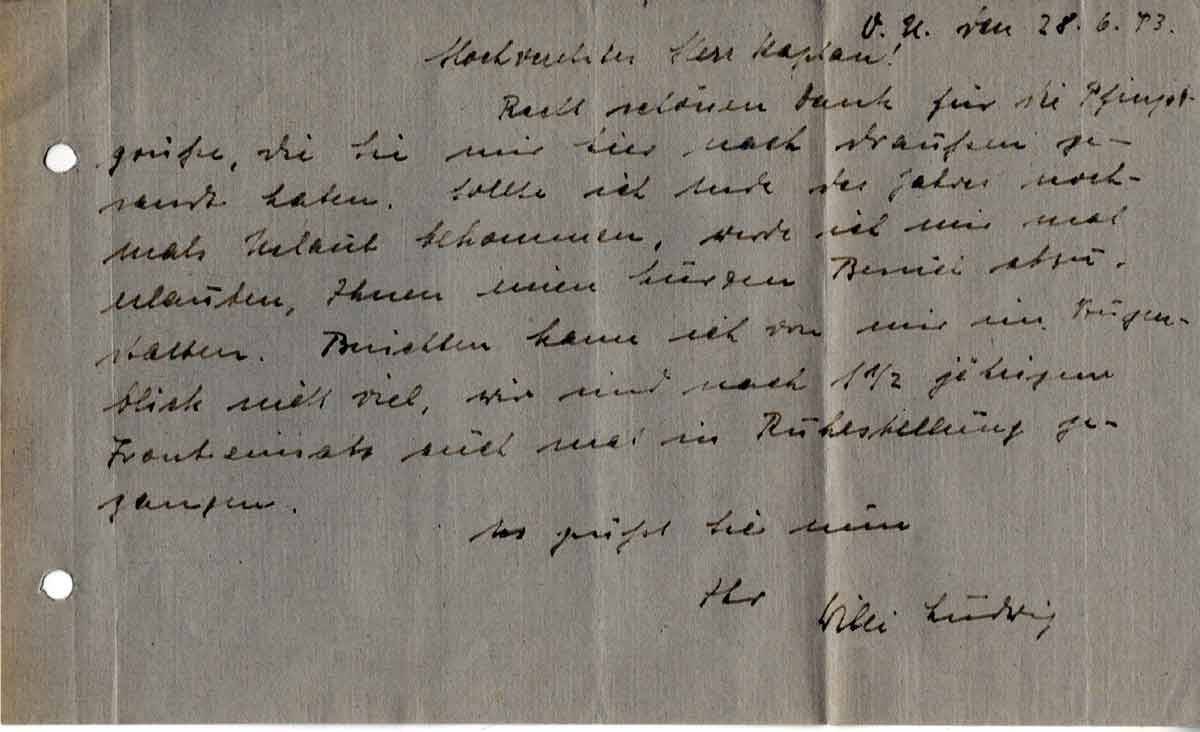 O. U. den 28. 6. 43.
Hochverehrter Herr Kaplan!
Recht schönen Dank für die Pfingst-
grüße, die Sie mir hier nach draußen ge-
sandt haben. Sollte ich Ende des Jahres noch-
mals Urlaub bekommen, werde ich mir mal
erlauben, Ihnen einen kurzen Besuch abzu-
statten. Berichten kann ich von mir im Augen-
blick nicht viel, wir sind nach 1 1/2 jährigem
Fronteinsatz auch mal in Ruhestellung ge-
gangen.
Es grüßt Sie nun
Ihr Willi Ludwig